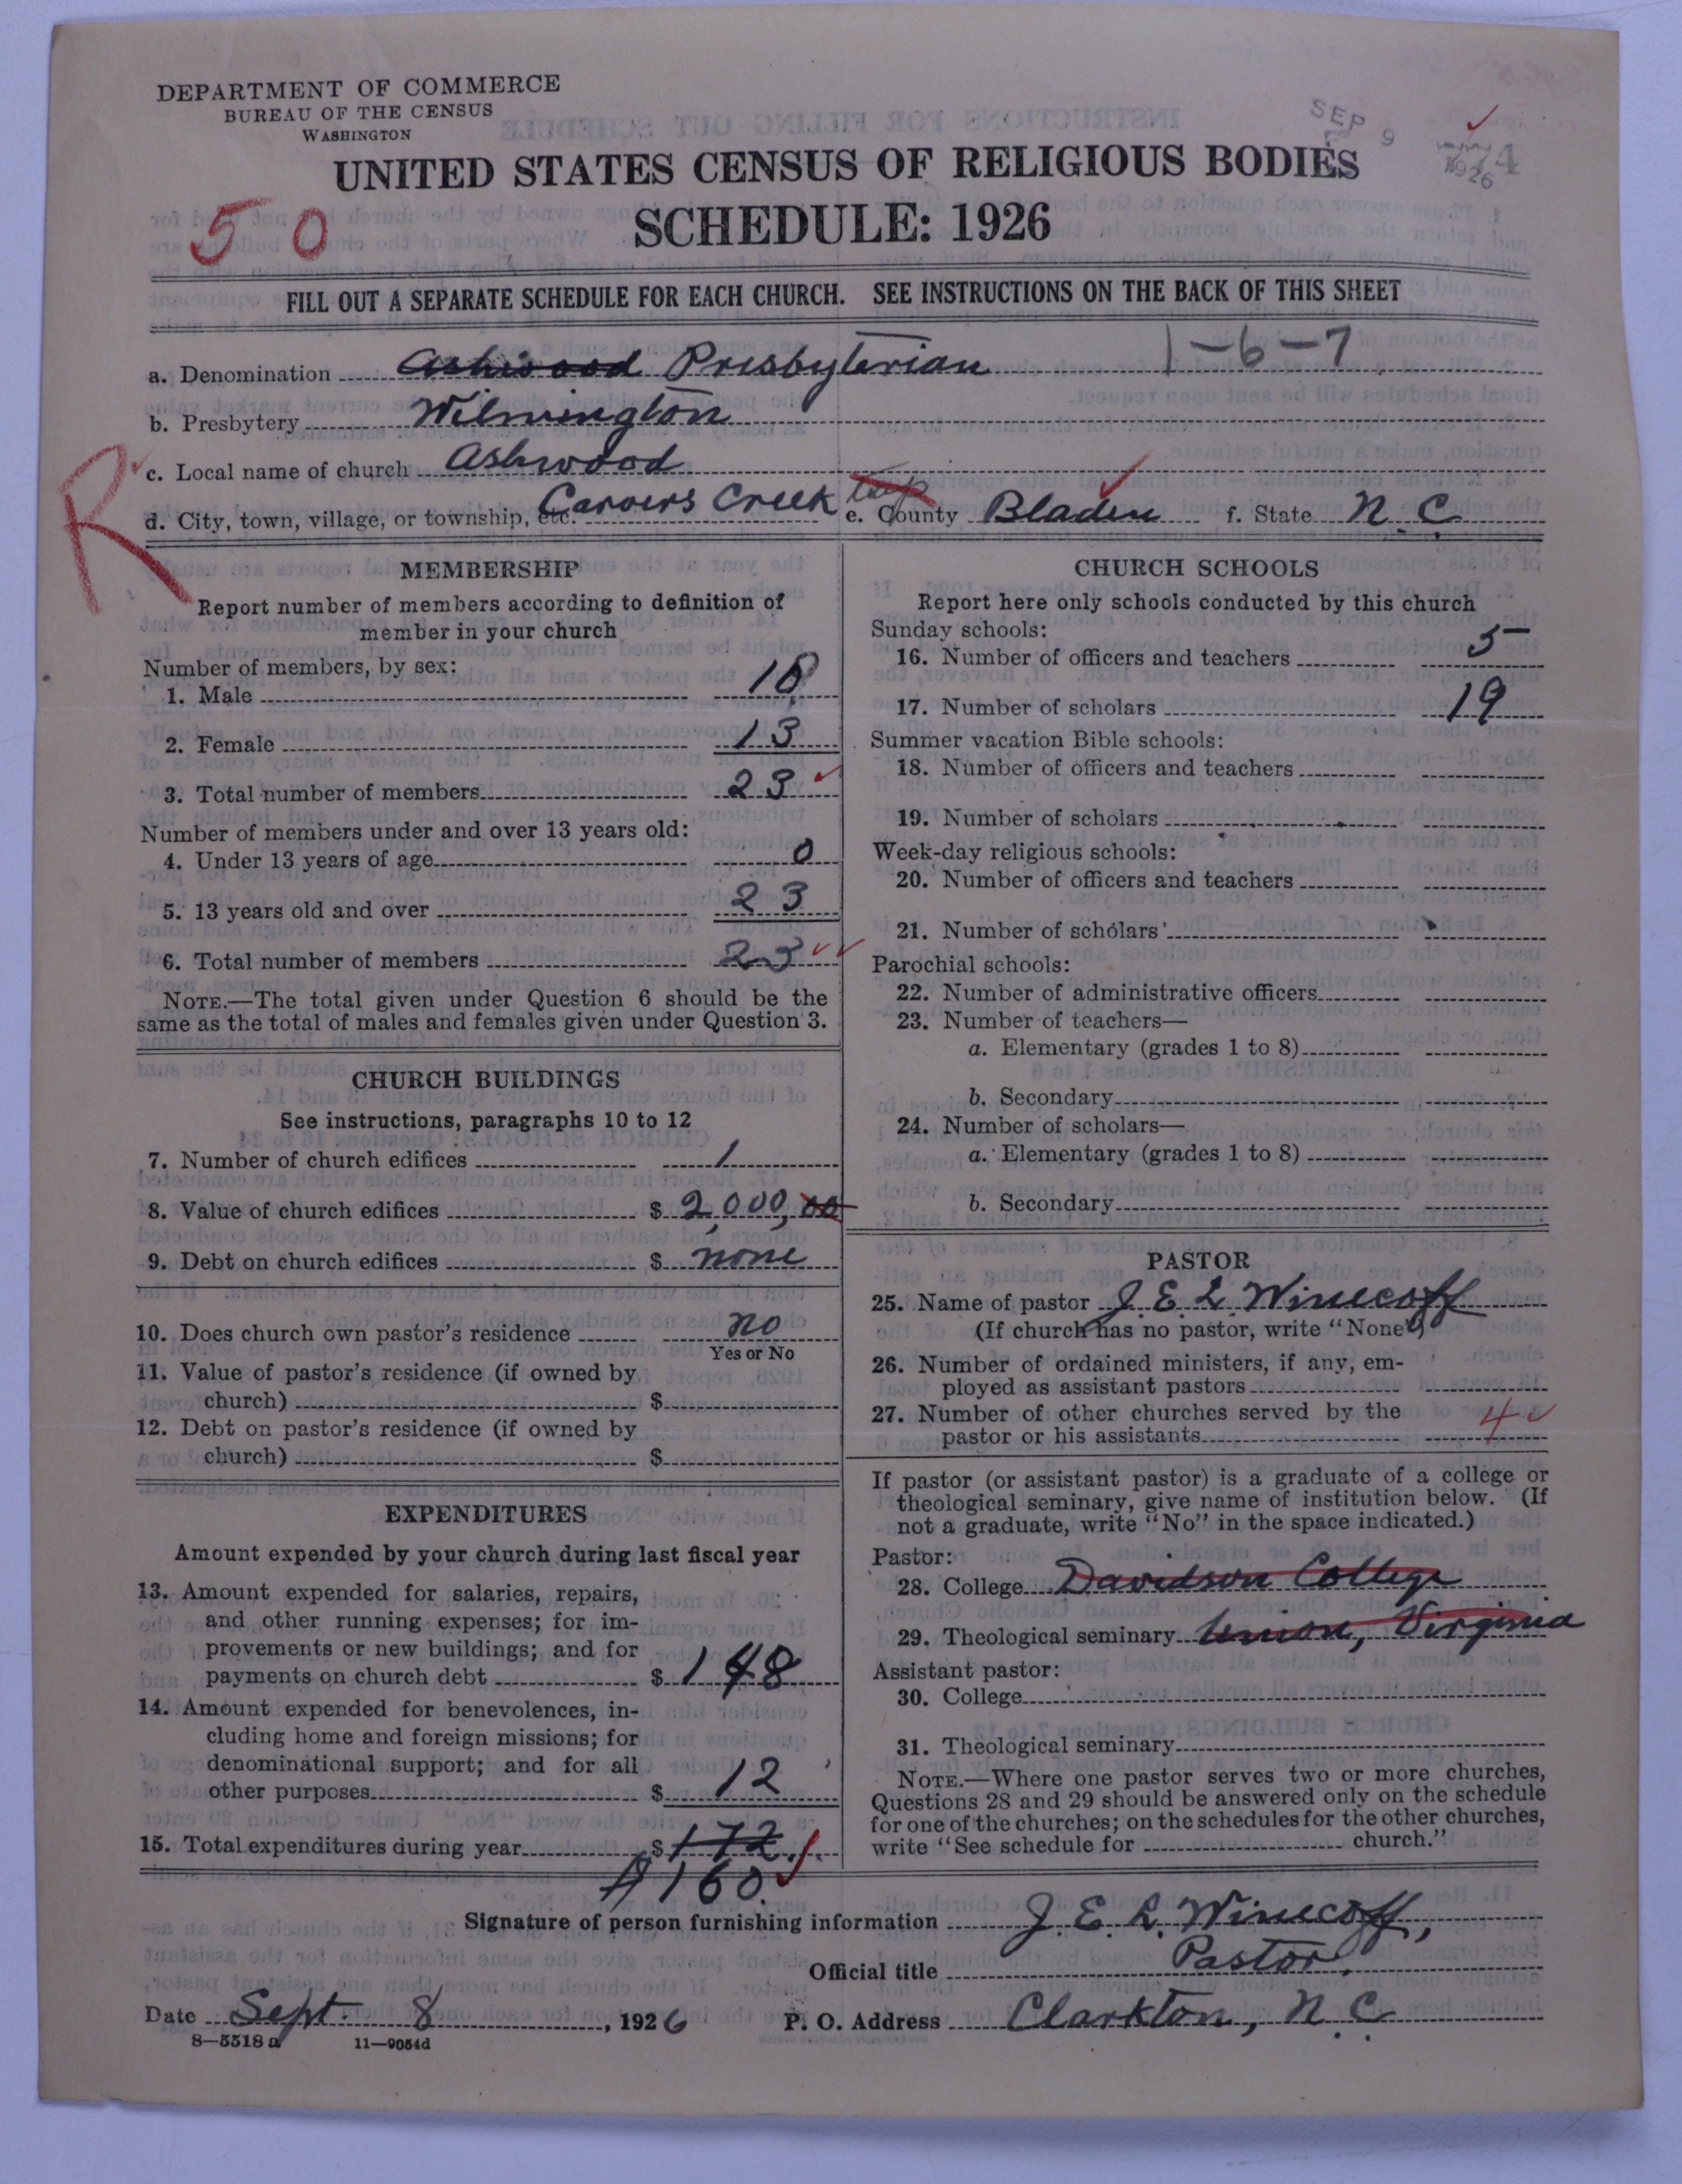 DEPARTMENT OF COMMERCE
BUREAU OF THE CENSUS
WASHINGTON
SEP 9 1926
UNITED STATES CENSUS OF RELIGIOUS BODIES
50
SCHEDULE: 1926
FILL OUT A SEPARATE SCHEDULE FOR EACH CHURCH. SEE INSTRUCTIONS ON THE BACK OF THIS SHEET
1-6-7
a. Denomination Ashwood Presbyterian
b. Presbytery Wilmington
R
c. Local name of church Ashwood
d. City, town, village, or township, etc. Carvers Creek twp e. County Bladen f. State N.C.
MEMBERSHIP
Report number of members according to definition of
member in your church
Number of members, by sex:
1. Male 10
2. Female 13
3. Total number of members 23
Number of members under and over 13 years old:
4. Under 13 years of age 0
5. 13 years old and over 23
6. Total number of members 23
NOTE.—The total given under Question 6 should be the
same as the total of males and females given under Question 3.
CHURCH BUILDINGS
See instructions, paragraphs 10 to 12
7. Number of church edifices 1
8. Value of church edifices $ 2,000,00
9. Debt on church edifices $ none
10. Does church own pastor's residence no
Yes or No
11. Value of pastor's residence (if owned by
church) $
12. Debt on pastor's residence (if owned by
church) $
EXPENDITURES
Amount expended by your church during last fiscal year
13. Amount expended for salaries, repairs,
and other running expenses; for im-
provements or new buildings; and for
payments on church debt $ 148
14. Amount expended for benevolences, in-
cluding home and foreign missions; for
denominational support; and for all
other purposes $ 12
15. Total expenditures during year $ 172.
$160.
CHURCH SCHOOLS
Report here only schools conducted by this church
Sunday schools:
16. Number of officers and teachers 5
17. Number of scholars 19
Summer vacation Bible schools:
18. Number of officers and teachers
19. Number of scholars
Week-day religious schools:
20. Number of officers and teachers
21. Number of scholars
Parochial schools:
22. Number of administrative officers
23. Number of teachers—
a. Elementary (grades 1 to 8)
b. Secondary
24. Number of scholars—
a. Elementary (grades 1 to 8)
b. Secondary
PASTOR
25. Name of pastor J. E. L. Winecoff
(If church has no pastor, write "None")
26. Number of ordained ministers, if any, em-
ployed as assistant pastors
27. Number of other churches served by the
pastor or his assistants 4
If pastor (or assistant pastor) is a graduate of a college or
theological seminary, give name of institution below. (If
not a graduate, write "No" in the space indicated.)
Pastor:
28. College Davidson College
29. Theological seminary Union, Virginia
Assistant pastor:
30. College
31. Theological seminary
NOTE.—Where one pastor serves two or more churches,
Questions 28 and 29 should be answered only on the schedule
for one of the churches; on the schedules for the other churches,
write "See schedule for church."
Signature of person furnishing information J. E. L. Winecoff,
Official title Pastor.
Date Sept. 8, 1926 P. O. Address Clarkton, N.C.
8—5518a 11—9054d